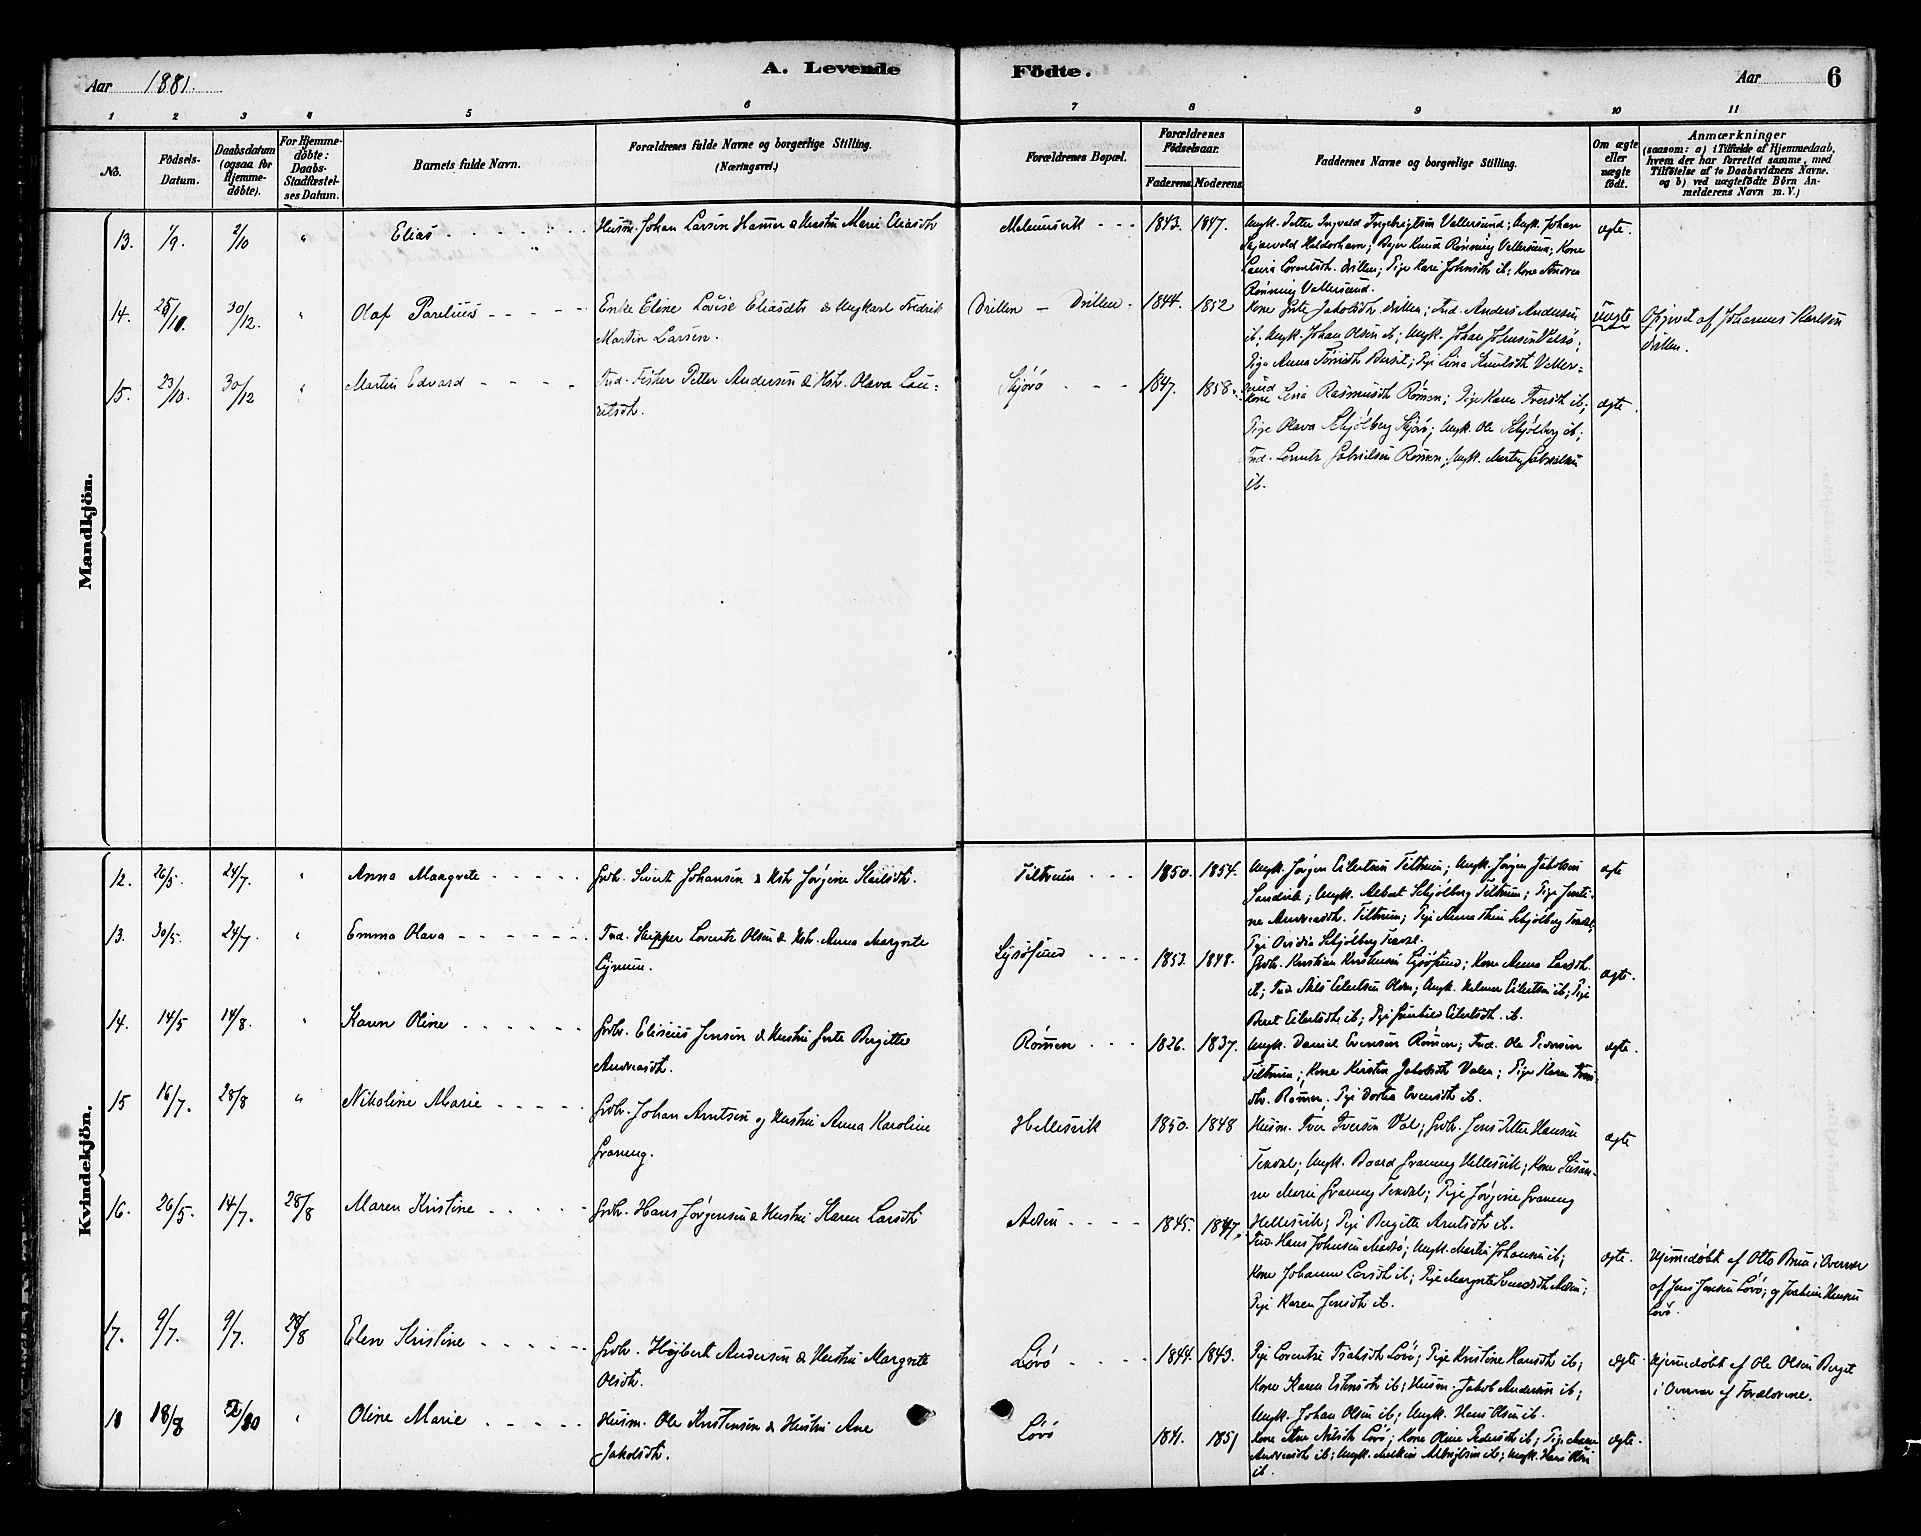 Aar 1881.
A. Levende
Födte.
Aar
6
1 2 3 4 5 6 7 8 9 10 11
No.
Födsels-Datum.
Daabsdatum (ogsaa for Hjemme-döbte).
For Hjemme-döbte: Daabs-Stadfæstel-ses Datum.
Barnets fulde Navn.
Forældrenes fulde Navne og borgerlige Stilling. (Næringsvei.)
Forældrenes Bopæl.
Forældrenes Födselsaar.
Faderens. Moderens.
Faddernes Navne og borgerlige Stilling.
Om ægte eller uægte födt.
Anmærkninger
(saasom: a) i Tilfælde af Hjemmedaab,
hvem der har forrettet samme, med
Tilföielse af to Daabsvidners Navne.
og b) ved uægtefödte Börn An-
melderens Navn m. V.)
Mandkjön.
13. 1/9. 2/10 " Elias
Husm. Johan Larsen Hamer & Hustru Marie Eliasdtr
1843. 1847.
Ungk. Petter Ingvald Ingebrigtsen Vallersund; Ungk. Johan
Halderhavn; Knud Rønning Vallersund; Kone
Laura Lorentsdt. Drillen; Pige Kari Johnsdt ib; Kone Andrea
Rønning Vallersund.
ægte.
14. 25/10. 30/12. " Olaf Parelius
Enke Eline Lovise Eliasdtr & Ungkarl Fredrik
Martin Larsen.
Drillen – Drillen. 1844. 1852
Kone Grete Jakobsdt Drillen; Ind. Anders Andersen
ib; Ungk. Johan Olsen ib; Ungk. Johan Johnsen Valsø;
Pige Anna Bersit; Pige Lina Knutsdt Valler-
sund
uægte
Opgivet af Johannes Karlsen
Drillen.
15. 23/10. 30/12 " Martin Edvard
Ind. Fisker Petter Andersen & Hstr. Olava Lau-
ritsdt.
Skjørø 1847. 1858.
Kone Lina Rasmusdt Rømen; Pige Karen Iversdt ib;
Pige Olava Schjølberg Skjørø; Ungk. Ole Schjølberg ib;
Ind. Lorents Gabrielsen Rømen; Ungk. Morten Gabrielsen
ib.
ægte.
Kvindekjön.
12. 26/5. 24/7. " Anna Maagrete
Grdbr. Sivert Johansen & Hstr Jørgine
Teltrum 1850. 1854.
Ungk. Jørgen Eilertsen Teltrum; Ungk. Jørgen Jakobsen
Sandvik; Ungk. Albert Schjølberg Teltrum; Pige
Andreasdt. Teltrum; Pige Anna Schjølberg
Pige Ovidia Schjølberg
ægte
13. 30/5. 24/7. " Emma Olava
Ind. Skipper Lorents Olsen & Hstr. Anna Margrete
Lysøsund 1853. 1848.
Grdbr. Kristian Kristensen Lysøsund; Kone Anna Larsdt.
ib; Ind. Nils Eilertsen Olden; Ungk. Helmer Eilertsen ib; Pige
Beret Eilertsdt ib; Pige Eilertsdt. ib.
ægte.
14. 14/5 14/8. " Karen Oline
Grdbr. Eliseus Jensen & Hustru Grete Birgitte
Andreasdt.
Rømen 1826. 1837.
Ungk. Daniel Evensen Rømen; Ind. Ole Pedersen
Teltrum; Kone Kirstin Jakobsdt Valen; Pige Karen
Rømen; Pige Dortea Evensdt ib.
ægte.
15 16/7. 28/8 " Nikoline Marie
Grdbr. Johan Arntsen og Hustru Anna Karoline
Graning.
Hellesvik 1850. 1848
Husm. Iver Iversen Val; Grdb. Jens Petter Hansen
Ungk. Baard Graning Hellesvik; Kone Susan-
ne Marie Graning Pige Jørgine Graning
Hellesvik; Pige Bergitte Arntsdt ib.
ægte
16. 26/5. 14/7. 28/8 Maren Kristine
Grdbr. Hans Jørgensen & Hustru Karen Larsdt
1845. 1847.
Ind. Hans Johnsen Ungk. Martin Johansen ib;
Kone Johanna Larsdt ib; Pige Margrete
Pige Karen Jensdt ib.
ægte.
Hjemmedøbt af Otto Bruu i Overvær
af Jens Jensen Løvø; og Joakim Hansen
Løvø.
17. 9/7. 9/7. 28/8 Elen Kristine
Grdbr. Højbert Andersen & Hustru Margrete
Olsdt.
Løvø 1844. 1843.
Pige Lorentse Løvø; Pige Kristine Hansdt ib;
Kone Karen Estensdt ib; Husm. Jakob Andersen ib;
Ungk. Johan Olsen ib; Ungk. Hans Olsen ib.
ægte.
Hjemmedøbt af Ole Olsen Berget
i Overvær af Forældrene.
18 18/8 2/10 " Oline Marie
Husm. Ole Kristensen & Hustru Ane
Jakobsdt.
Løvø 1841. 1851
Kone Ane Nilsdt Løvø; Kone Oline Pedersdt ib; Pige Maren
Andreasdt ib; Ungk. ib; Ungk. Hans
ib.
ægte.